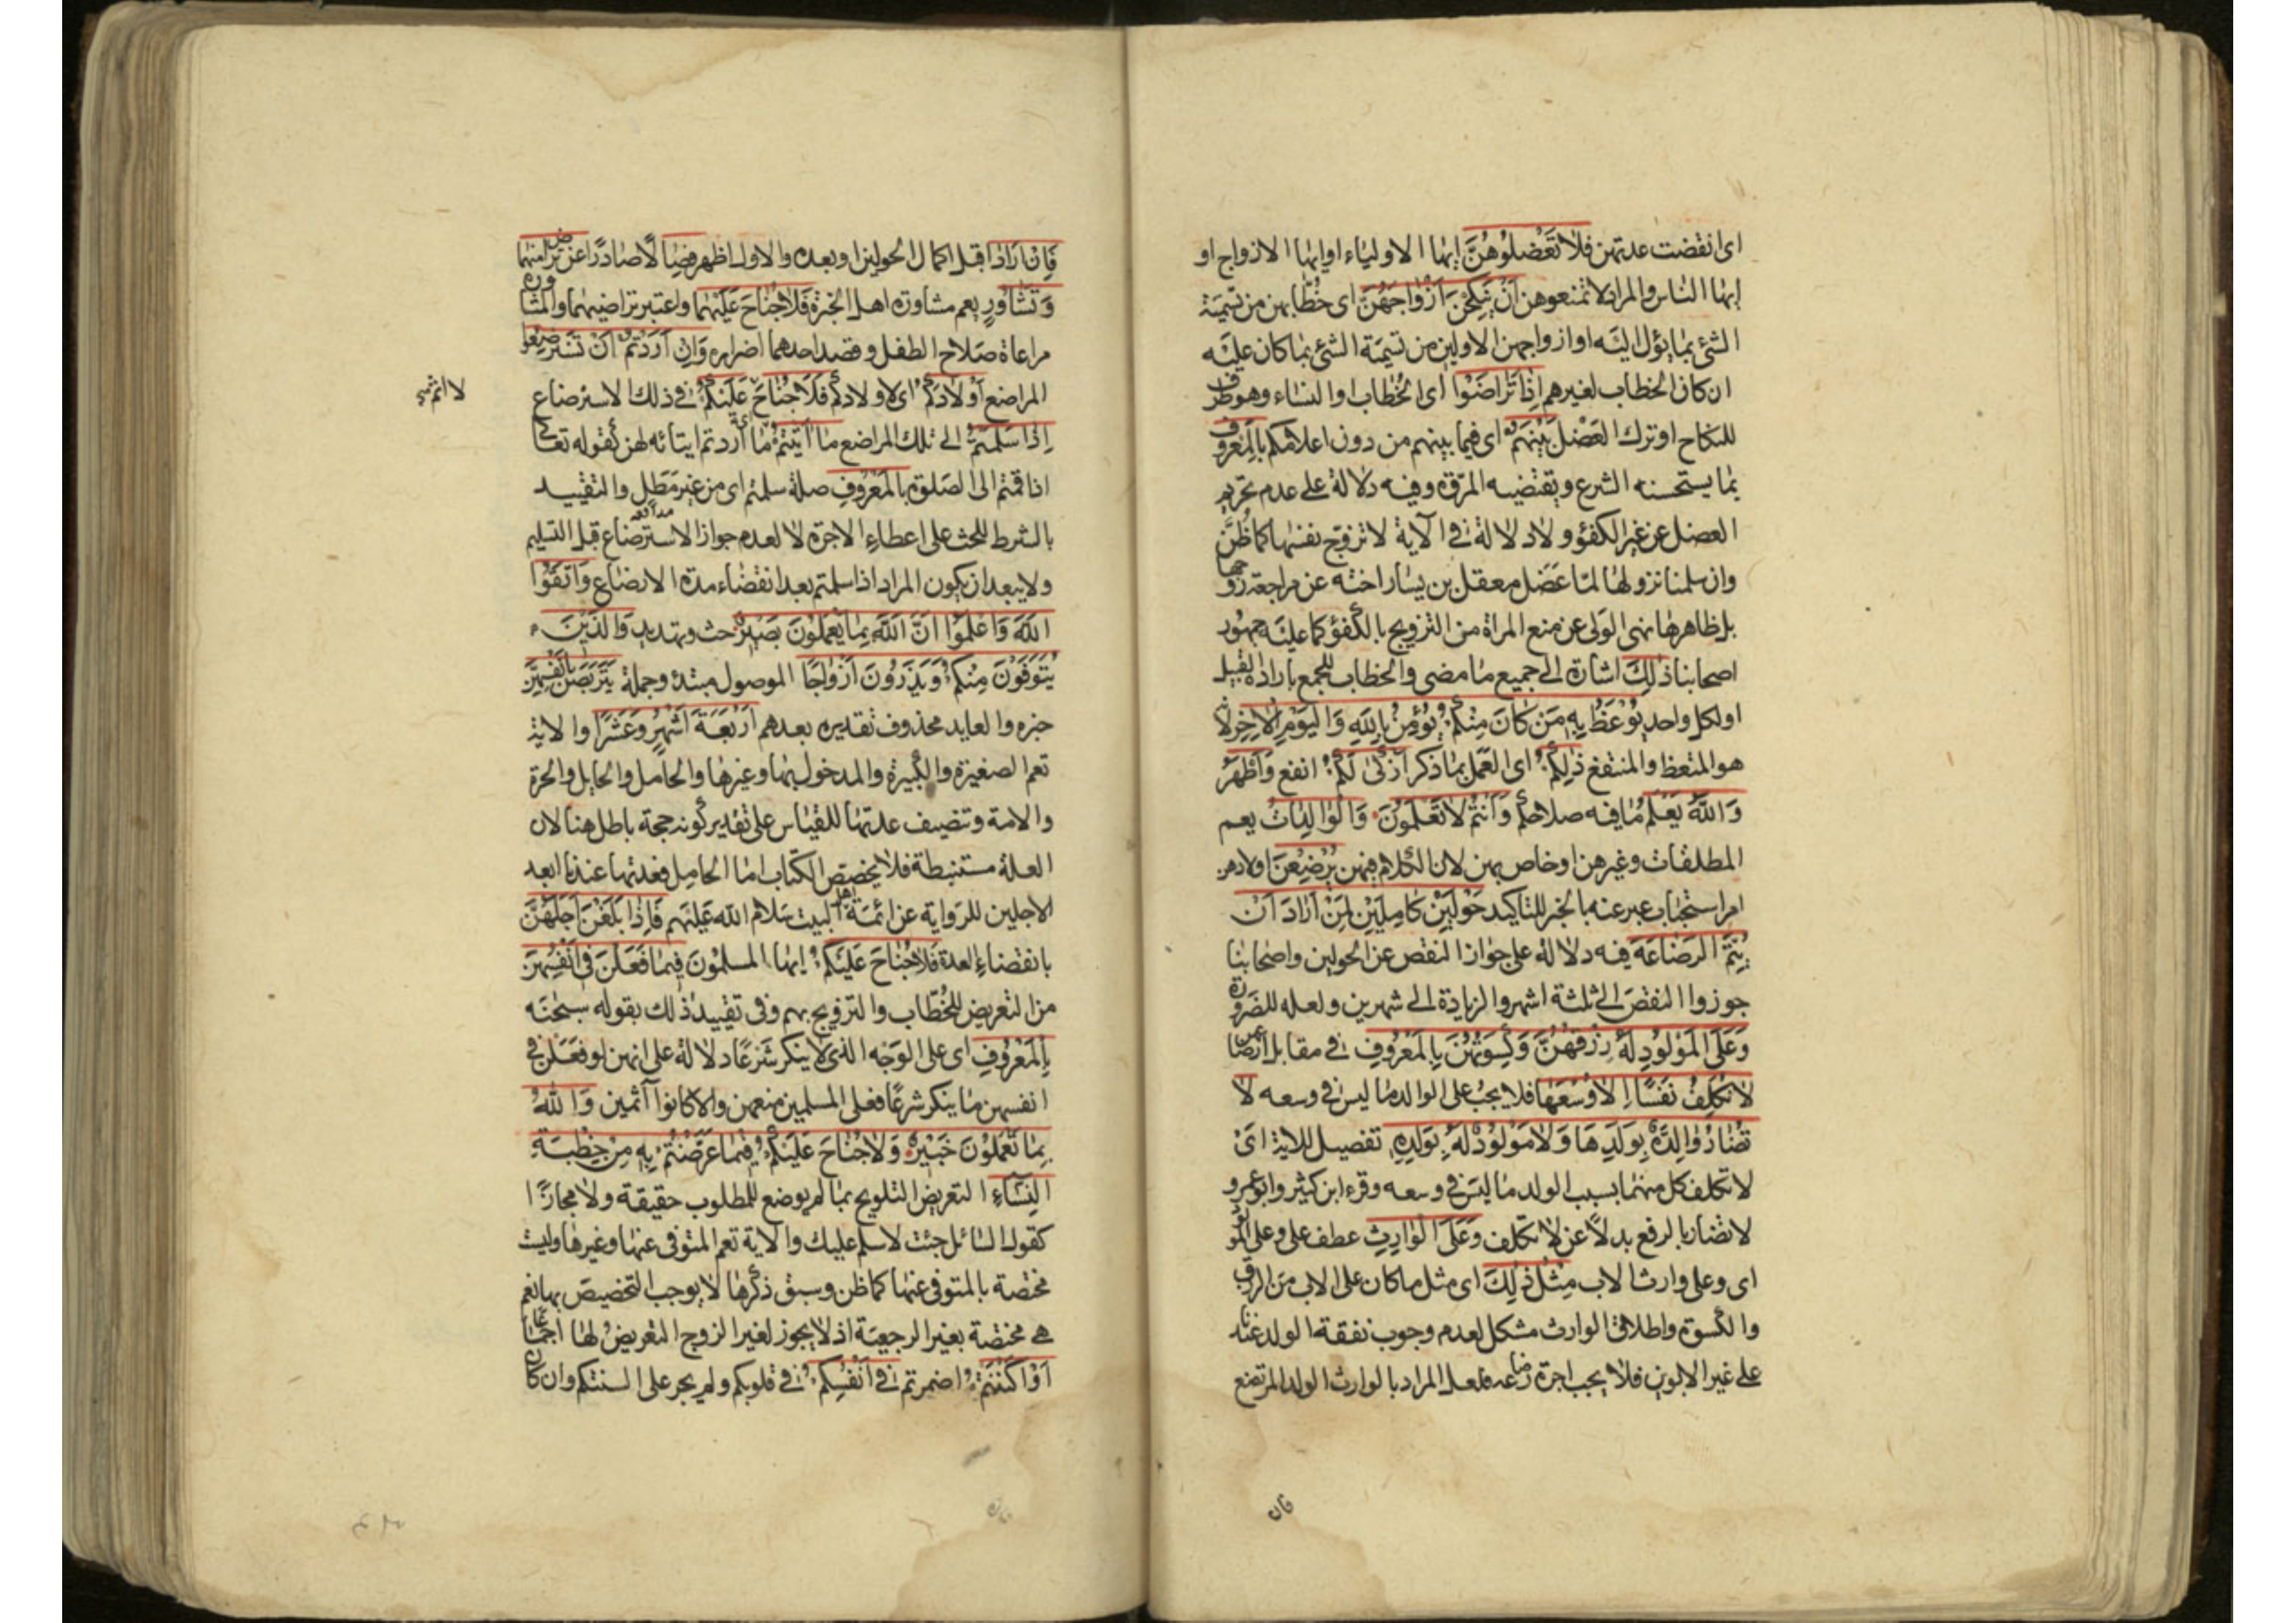 اى انقضت عدتهن فلا تَعْضُلُوْهُنَّ ايها الاولياء او ايها الازواج او
ايها الناس والمراد لا تمنعوهن اَنْ يَنْكِحْنَ اَزْوَاجَهُنَّ اى خُطّابهن من تسمية
الشئ بما يؤل اليَه او ازواجهن الاولين من تسمَية الشئ بما كان عليَه
ان كان الخطاب لغيرهم اِذَا تَرَاضَوْا اى الخُطاب والنساء وهو ظرف
للنكاح او ترك العَضْل بَيْنَهُمْ اى فيما بينهم من دون اعلامكم بِالْمَعْرُوفِ
بما يستحسنه الشرع ويقتضيه المرّوة وفيه دلالة على عدم تحريم
العضل عن غير الكفؤ ولا دلالة فى الآية لا تزوّج نفسها كما ظُنَّ
وان سلمنا نزولها لمّا عَضَل معقل بن يسار اخته عن مراجعة زوجها
بل ظاهرها نهى الوَلى عن منع المراة من التزويج بالكفؤ كما عليَه جمهور
اصحابنا ذٰلِكَ اشارة الى جميع ما مضى والخطاب للجمع بارادة القبيل
او لكل واحد يُوْعَظُ بِهٖ مَنْ كَانَ مِنْكُمْ يُؤْمِنُ بِاللّٰهِ وَالْيَوْمِ الْاٰخِرِ لانه
هو المتعظ والمنتفع ذٰلِكُمْ اى العَمل بما ذكر اَزْكٰى لَكُمْ انفع وَاَطْهَرُ
وَاللّٰهُ يَعْلَمُ مَا فيه صلاحكم وَاَنْتُمْ لَا تَعْلَمُوْنَ وَالْوَالِدَاتُ يعم
المطلقات وغيرهن او خاص بهن لان الكلام فيهن يُرْضِعْنَ اولادهن
امر استحباب عبر عنه بالخبر للتاكيد حَوْلَيْنِ كَامِلَيْنِ لِمَنْ اَرَادَ اَنْ
يُتِمَّ الرَّضَاعَةَ فيه دلالة على جواز النقص عن الحولين واصحابنا
جوزوا النقص الى ثلثة اشهر والزيادة الى شهرين ولعله للضرورة
وَعَلَى الْمَوْلُوْدِ لَهٗ رِزْقُهُنَّ وَكِسْوَتُهُنَّ بِالْمَعْرُوْفِ فى مقابل ارضاعهن
لَا تُكَلَّفُ نَفْسٌ اِلَّا وُسْعَهَا فلا يجب على الوالد ما ليس فى وسعه لَا
تُضَارَّ وَالِدَةٌ بِوَلَدِهَا وَلَا مَوْلُوْدٌ لَهٗ بِوَلَدِهٖ تفصيل للاية اى
لا تكلف كل منهما بسبب الولد ما ليس فى وسعه وقرء ابن كثير وابو عمرو
لا تضار بالرفع بدلاً عن لا تكلف وَعَلَى الْوَارِثِ عطف على وعلى المولود
اى وعلى وارث الاب مِثْلُ ذٰلِكَ اى مثل ما كان على الاب من الرزق
والكسوة واطلاق الوارث مشكل لعدم وجوب نفقة الولد عندنا
على غير الابوين فلا يجب اجرة رضاعه فلعل المراد بالوارث الولد المرتضع
فَاِنْ اَرَادَا قبل اكمال الحولين او بعده والاول اظهر فِصَالًا صادرًا عن تَرَاضٍ مِنْهُمَا
وَتَشَاوُرٍ يعم مشاورة اهل الخبرة فَلَا جُنَاحَ عَلَيْهِمَا واعتبر تراضيهما والمشاورة
مراعاة صلاح الطفل وقصد احدهما اضراره وَاِنْ اَرَدْتُمْ اَنْ تَسْتَرْضِعُوْا
المراضع اَوْلَادَكُمْ اى لاولادكم فَلَا جُنَاحَ عَلَيْكُمْ فى ذلك الاسترضاع
لا اثم
اِذَا سَلَّمْتُمْ الى تلك المراضع مَا اٰتَيْتُمْ ما اردتم ايتائه لهن كقوله تعالى
اذا قمتم الى الصلوة بِالْمَعْرُوْفِ صلة سلمتم اى من غير مَطَلٍ والتقييد
مدافعه
بالشرط للحث على اعطاء الاجرة لا لعدم جواز الاسترضاع قبل التسليم
ولا يبعد ان يكون المراد اذا سلمتم بعد انقضاء مدة الارضاع وَاتَّقُوْا
اللّٰهَ وَاعْلَمُوْا اَنَّ اللّٰهَ بِمَا تَعْمَلُوْنَ بَصِيْرٌ حث وتهديد وَالَّذِيْنَ
يُتَوَفَّوْنَ مِنْكُمْ وَيَذَرُوْنَ اَزْوَاجًا الموصول مبتدء وجملة يَتَرَبَّصْنَ بِاَنْفُسِهِنَّ
خبره والعايد محذوف تقديره بعدهم اَرْبَعَةَ اَشْهُرٍ وَعَشْرًا والاية
تعم الصغيرة والكبيرة والمدخول بها وغيرها والحامل والحايل والحرة
والامة وتنصيف عدتها للقياس على تقدير كونه حجة باطل هنا لان
العلة مستنبطة فلا يخصص الكتاب اما الحامل فعدتها عندنا ابعد
الاجلين للرواية عن ائمة اهل البيت سلام الله عليهم فَاِذَا بَلَغْنَ اَجَلَهُنَّ
بانقضاء العدة فَلَا جُنَاحَ عَلَيْكُمْ ايها المسلمون فِيْمَا فَعَلْنَ فِى اَنْفُسِهِنَّ
من التعريض للخُطّاب والتزويج بهم وفى تقييد ذلك بقوله سبحنه
بِالْمَعْرُوْفِ اى على الوجه الذى لا ينكر شرعًا دلالة على انهن لو فعلن فى
انفسهن ما ينكر شرعًا فعلى المسلمين منعهن والا كانوا آثمين وَاللّٰهُ
بِمَا تَعْمَلُوْنَ خَبِيْرٌ وَلَا جُنَاحَ عَلَيْكُمْ فِيْمَا عَرَّضْتُمْ بِهٖ مِنْ خِطْبَةِ
النِّسَاءِ التعريض التلويح بما لم يوضع للمطلوب حقيقة ولا مجازًا
كقول السائل جئت لاسلم عليك والاية تعم المتوفى عنها وغيرها وليت
مختصة بالمتوفى عنها كما ظن وسبق ذكرها لا يوجب التخصيص بها نعم
هى مختصة بغير الرجعية اذ لا يجوز لغير الزوج التعريض لها اجماعا
اَوْ اَكْنَنْتُمْ اضمرتم فِى اَنْفُسِكُمْ فى قلوبكم ولم يجر على السنتكم وان كان